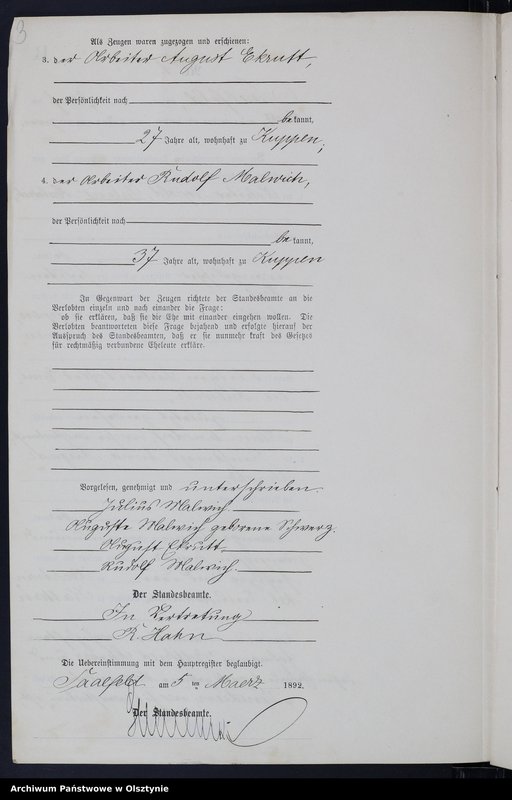 3
Als Zeugen waren zugezogen und erschienen:
3. der Arbeiter August Ekrutt,
der Persönlichkeit nach
bekannt,
27 Jahre alt, wohnhaft zu Kuppen;
4. der Arbeiter Rudolf Malwich,
der Persönlichkeit nach
bekannt,
37 Jahre alt, wohnhaft zu Kuppen
In Gegenwart der Zeugen richtete der Standesbeamte an die
Verlobten einzeln und nach einander die Frage:
ob sie erklären, daß sie die Ehe mit einander eingehen wollen. Die
Verlobten beantworteten diese Frage bejahend und erfolgte hierauf der
Ausspruch des Standesbeamten, daß er sie nunmehr kraft des Gesetzes
für rechtmäßig verbundene Eheleute erkläre.
Vorgelesen, genehmigt und unterschrieben.
Julius Malwich.
Auguste Malwich geborene Schwerz.
August Ekrutt.
Rudolf Malwich.
Der Standesbeamte.
In Vertretung
R. Hahn
Die Uebereinstimmung mit dem Hauptregister beglaubigt.
Saalfeld am 5 ten Maerz 1892.
Der Standesbeamte.
Archiwum Państwowe w Olsztynie